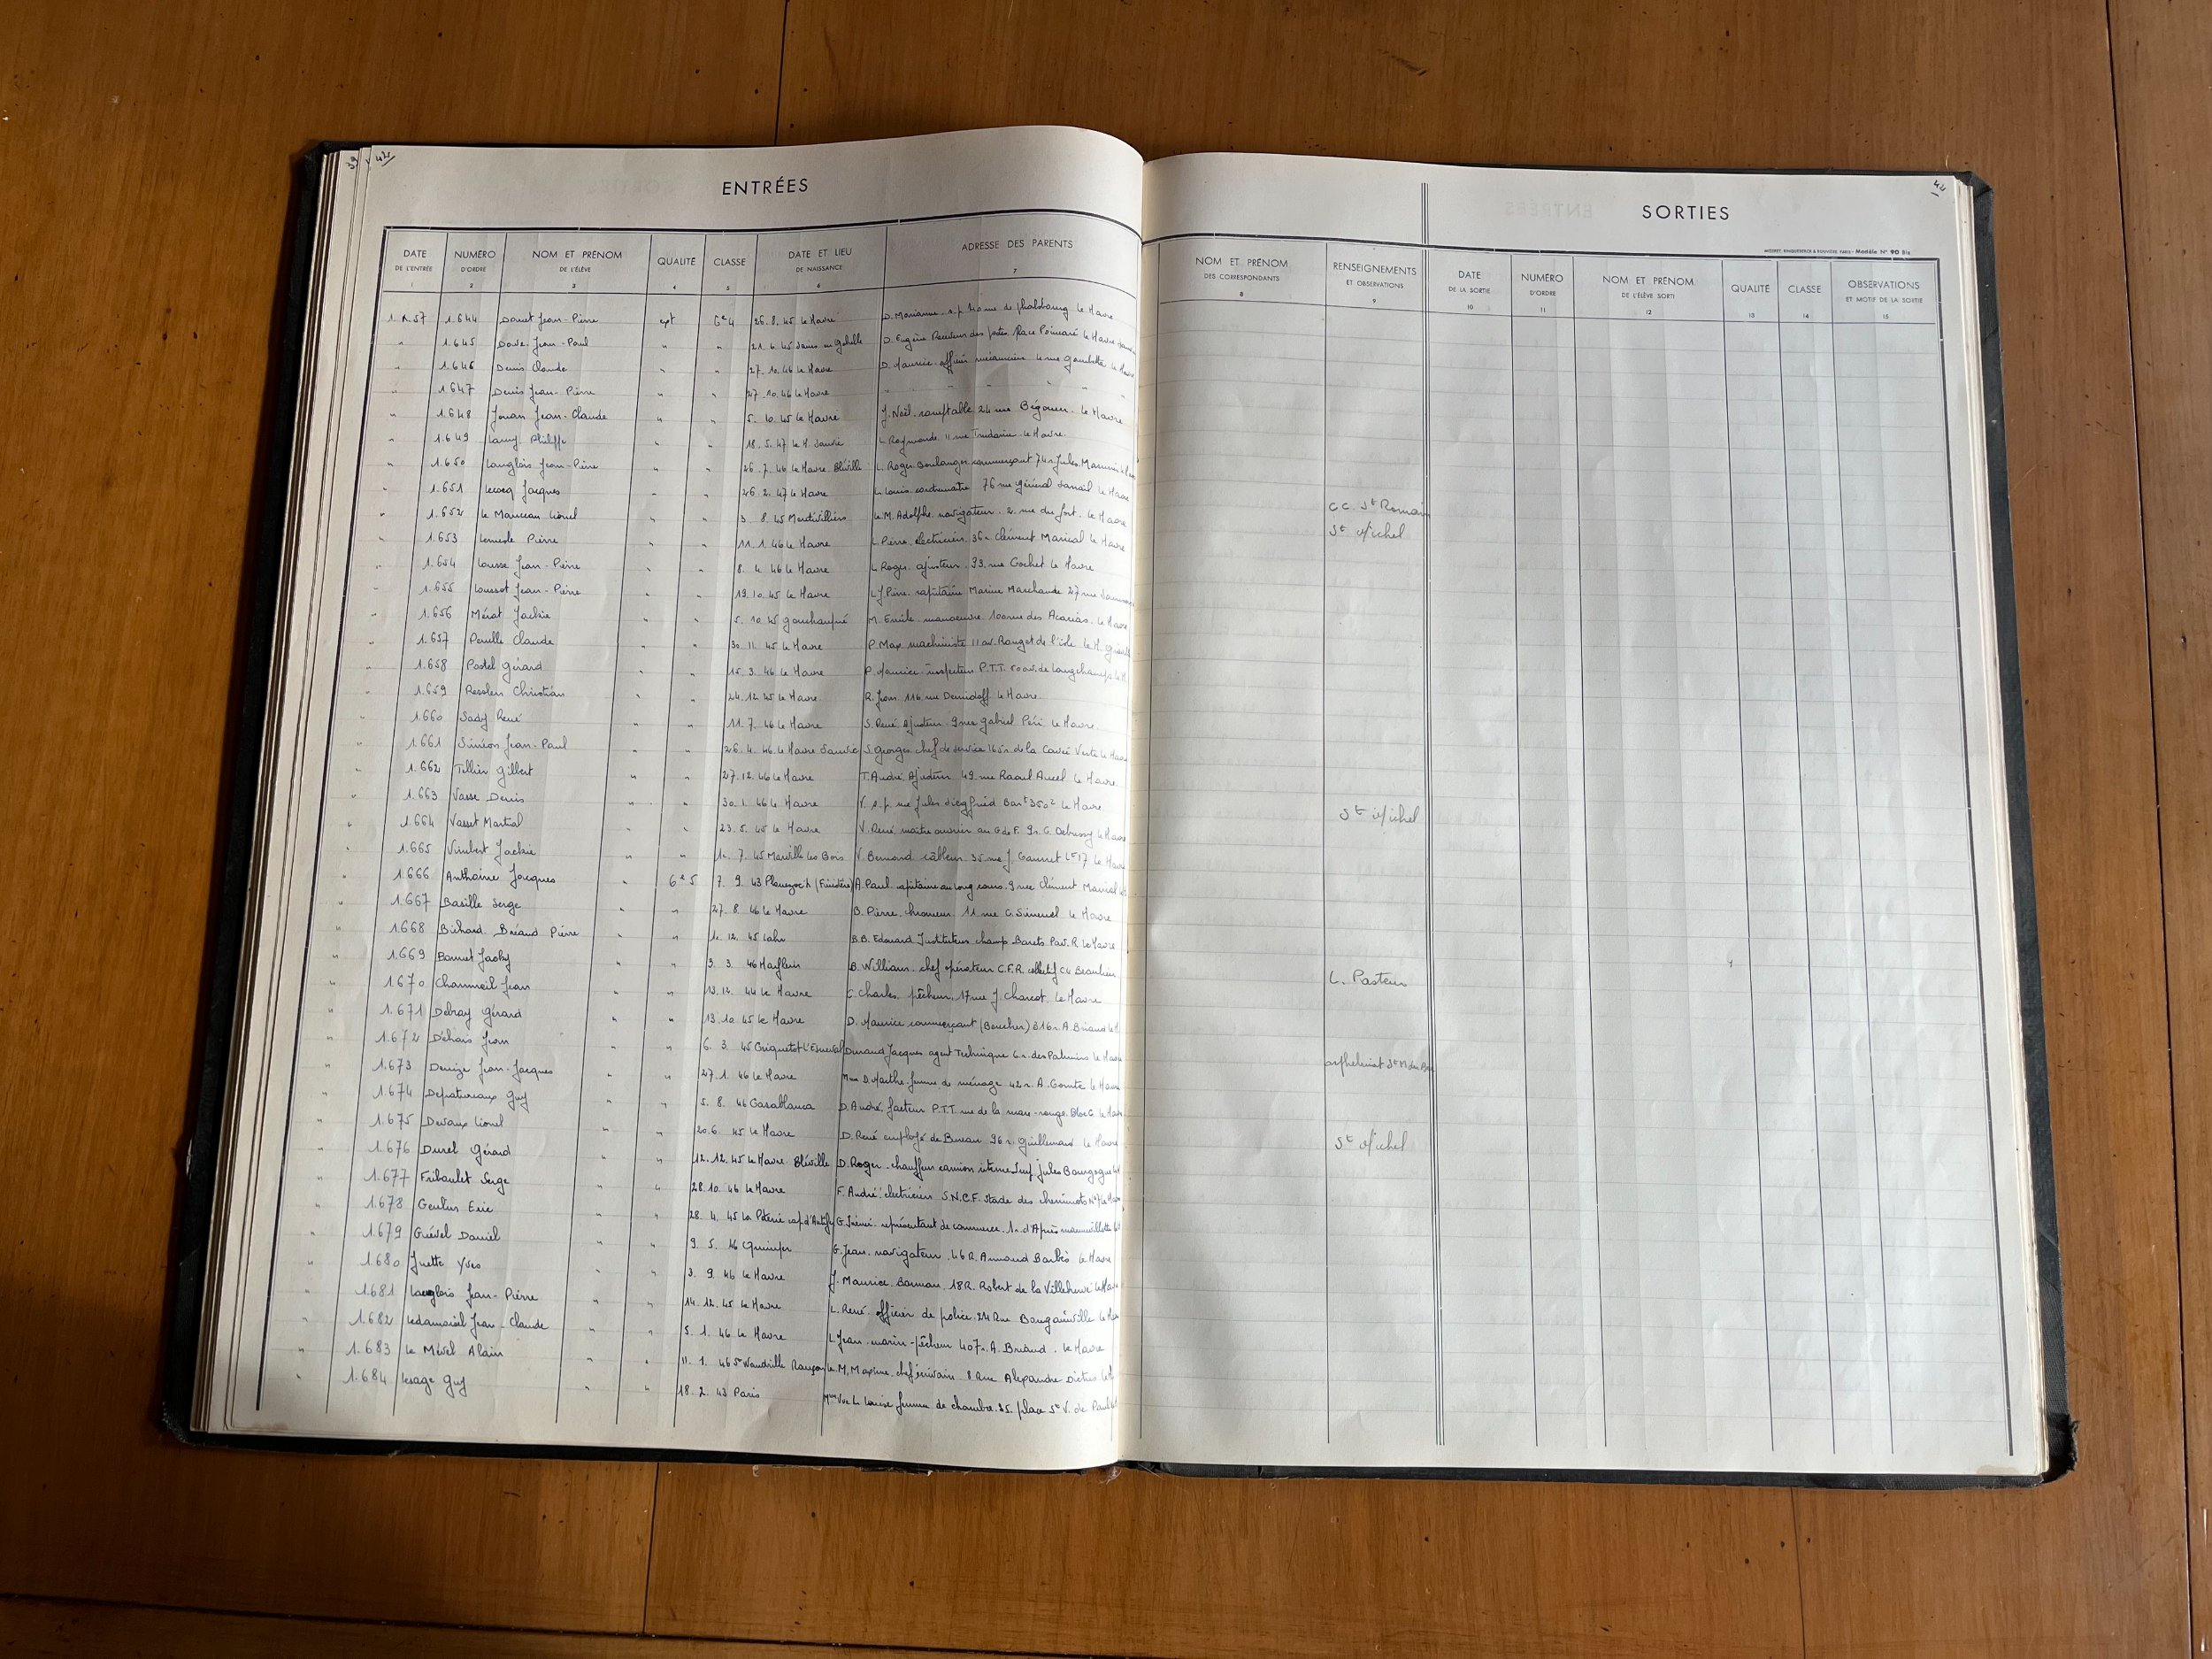 39
42
ENTRÉES
DATE DE L'ENTRÉE 1 NUMÉRO D'ORDRE 2 NOM ET PRÉNOM DE L'ÉLÈVE 3 QUALITÉ 4 CLASSE 5 DATE ET LIEU DE NAISSANCE 6 ADRESSE DES PARENTS 7
1.644 Jean-Pierre ept 6e4 26.8.45 le Havre D. Marianne s.p. rue de Phalsbourg le Havre
" 1.645 Jean-Paul " " 21.6.45 D. Eugène Receveur des postes Place Poincaré le Havre
" 1.646 Denis Claude " " 27.10.46 le Havre D. Maurice officier mécanicien 4 rue Gambetta le Havre
" 1.647 Denis Jean-Pierre " " 27.10.46 le Havre " " " "
" 1.648 Jouan Jean-Claude " " 5.10.45 le Havre J. Noël comptable 24 rue Bégouen le Havre
" 1.649 Lamy Philippe " " 18.5.47 le H. Sanvic L. Raymonde 11 rue Trudaine le Havre
" 1.650 Langlois Jean-Pierre " " 26.7.46 le Havre Bléville L. Roger Boulanger commerçant 74 r. Jules
" 1.651 Lecoq Jacques " " 26.2.47 le Havre L. Louis contremaître 76 rue Général Sarrail le Havre
" 1.652 le Manceau Lionel " " 3.8.45 Montivilliers le M. Adolphe navigateur 2 rue du fort le Havre
" 1.653 Lemesle Pierre " " 11.1.46 le Havre L. Pierre électricien 36 r. Clément Marical le Havre
" 1.654 Lousse Jean-Pierre " " 8.4.46 le Havre L. Roger ajusteur 33 rue Cochet le Havre
" 1.655 Loussot Jean-Pierre " " 19.10.45 le Havre L. J. Pierre capitaine Marine Marchande 27 rue
" 1.656 Mérat Jackie " " 5.10.45 M. Emile manoeuvre 100 rue des Acacias le Havre
" 1.657 Perelle Claude " " 30.11.45 le Havre P. Max machiniste 11 av. Rouget de l'isle le H.
" 1.658 Postel Gérard " " 15.3.46 le Havre P. Maurice inspecteur P.T.T. 50 av. de Longchamps le H.
" 1.659 Christian " 24.12.45 le Havre R. Jean 116 rue Demidoff le Havre
" 1.660 Sady René " " 11.7.46 le Havre S. René Ajusteur 9 rue Gabriel Péri le Havre
" 1.661 Siméon Jean-Paul " " 26.4.46 le Havre Sanvic S. Georges chef de service 165 r. de la Cavée Verte le Havre
" 1.662 Tellier Gilbert " " 27.12.46 le Havre T. André Ajusteur 49 rue Raoul Ancel le Havre
" 1.663 Vasse Denis " " 30.1.46 le Havre V. s.p. rue Jules Siegfried Bart 3502 le Havre
" 1.664 Vasset Martial " " 23.5.45 le Havre V. René maître ouvrier au GdeF. 9 r. C. Debussy le Havre
" 1.665 Vimbert Jackie " " 12.7.45 Marville les Bois V. Bernard câbleur 35 rue J. Lt 17 le Havre
" 1.666 Anthoine Jacques " 6e5 7.9.43 (Finistère) A. Paul capitaine au long cours 9 rue Clément Marical
" 1.667 Basille Serge " " 27.8.46 le Havre B. Pierre chromeur 11 rue C. le Havre
" 1.668 Béchard Briand Pierre " " 1.12.45 Lahr B.B. Edouard Instituteur champ Barets Pav. R le Havre
" 1.669 Bonnet Jacky " " 3.3.46 Harfleur B. William chef opérateur C.F.R. collectif C4 Beaulieu
" 1.670 Jean " " 13.12.44 le Havre C. Charles pêcheur 17 rue J. Charcot le Havre
" 1.671 Delray Gérard " " 13.10.45 le Havre D. Maurice commerçant (Boucher) 216 r. A. Briand le H.
" 1.672 Déhais Jean " " 6.3.45 Criquetot L'Esneval Durand Jacques agent Technique 6 r. des Palmiers le Havre
" 1.673 Denize Jean-Jacques " " 27.1.46 le Havre Mme D. Marthe femme de ménage 42 r. A. Comte le Havre
" 1.674 Depatureaux Guy " " 5.8.46 Casablanca D. André facteur P.T.T. rue de la mare-rouge Bloc C le Havre
" 1.675 Devaux Lionel " " 20.6.45 le Havre D. René employé de Bureau 96 r. Guillemard le Havre
" 1.676 Durel Gérard " " 12.12.45 le Havre Bléville D. Roger chauffeur camion Jules Bourgogne
" 1.677 Fribaulet Serge " " 28.10.46 le Havre F. André électricien S.N.C.F. Stade des cheminots le Havre
" 1.678 Eric " " 28.4.45 La Poterie cap d'Antifer G. représentant de commerce 1 r. d'Après mannevillette
" 1.679 Guével Daniel " " 9.5.46 Quimper G. Jean navigateur 46 R. Armand Barbès le Havre
" 1.680 Juette Yves " " 3.9.46 le Havre J. Maurice Barman 18 R. Robert de la Villeherve le Havre
" 1.681 Langlois Jean-Pierre " " 14.12.45 le Havre L. René officier de police 24 Rue Bougainville le Havre
" 1.682 Ledamoisel Jean-Claude " " 5.1.46 le Havre L. Jean marin-pêcheur 407 r. A. Briand le Havre
" 1.683 le Mével Alain " " 11.1.46 St Wandrille Rançon le M. Maxime chef écrivain 8 Rue Alexandre
" 1.684 Lesage Guy " " 18.2.43 Paris Mme Vve L. Louise femme de chambre 35 place St V. de Paul
44
SORTIES
Modèle N° 90 Bis
NOM ET PRÉNOM DES CORRESPONDANTS 8 RENSEIGNEMENTS ET OBSERVATIONS 9 DATE DE LA SORTIE 10 NUMÉRO D'ORDRE 11 NOM ET PRÉNOM DE L'ÉLÈVE SORTI 12 QUALITÉ 13 CLASSE 14 OBSERVATIONS ET MOTIF DE LA SORTIE 15
C.C. St Romain
St Michel
St Michel
L. Pasteur
orphelinat
St Michel